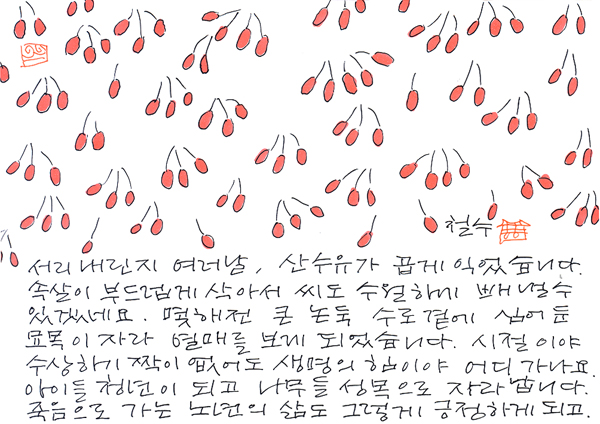 철수
서리 내린지 여러날, 산수유가 곱게 익었습니다.
속살이 부드럽게 삭아서 씨도 수월하게 빼 낼 수
있겠네요. 몇해전 큰 논둑 수로 곁에 심어 둔
묘목이 자라 열매를 보게 되었습니다. 시절이야
수상하기 짝이 없어도 생명의 힘이야 어디 가나요.
아이들 청년이 되고 나무들 성목으로 자라 납니다.
죽음으로 가는 노년의 삶도 그렇게 긍정하게 되고.